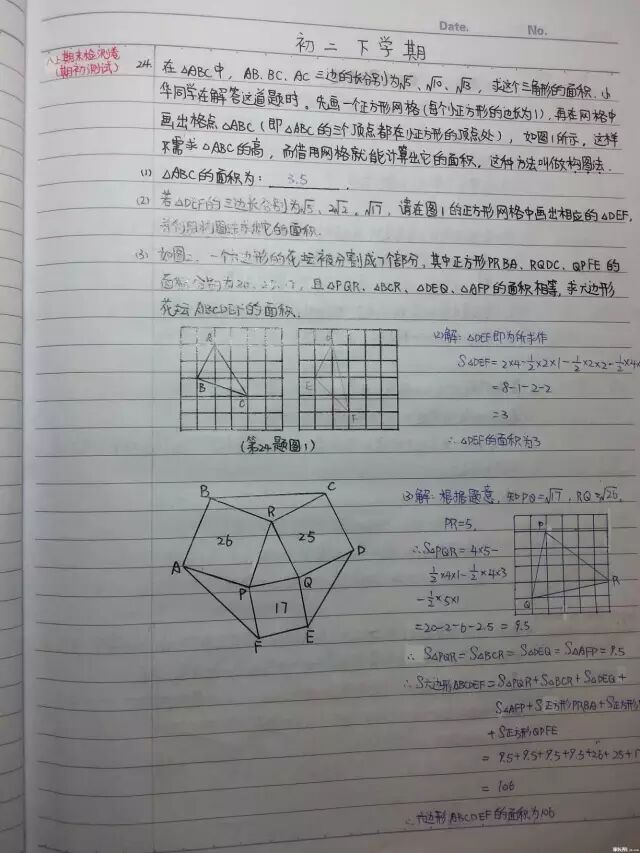 Date.
No.
初二下学期
八上期末检测卷
(期初测试)
24. 在△ABC中, AB、BC、AC三边的长分别为√5、√10、√13, 求这个三角形的面积. 小
华同学在解答这道题时, 先画一个正方形网格(每个小正方形的边长为1), 再在网格中
画出格点△ABC(即△ABC的三个顶点都在小正方形的顶点处), 如图1所示, 这样
不需求△ABC的高, 而借用网格就能计算出它的面积, 这种方法叫做构图法.
(1) △ABC的面积为: 3.5
(2) 若△DEF的三边长分别为√5、2√2、√17, 请在图1的正方形网格中画出相应的△DEF,
并利用构图法求出它的面积.
(3) 如图2, 一个六边形的花坛被分割成7个部分, 其中正方形PRBA、RQDC、QPFE的
面积分别为 且△PQR、△BCR、△DEQ、△AFP的面积相等, 求六边形
花坛ABCDEF的面积.
A
B
C
D
E
F
(第24题图1)
(2)解: △DEF即为所求作
S△DEF=2×4-½×2×1-½×2×2-½×4×
=8-1-2-2
=3
∴△DEF的面积为3
B
C
R
26
25
A
D
P
Q
17
F
E
(3)解: 根据题意, 知PQ=√17, RQ=√25,
PR=5,
∴S△PQR=4×5-
½×4×1-½×4×3
-½×5×1
=20-2-6-2.5=9.5
P
Q
R
∴S△PQR=S△BCR=S△DEQ=S△AFP=9.5
∴S六边形ABCDEF=S△PQR+S△BCR+S△DEQ+
S△AFP+S正方形PRBA+S正方形
+S正方形QPFE
=9.5+9.5+9.5+9.5+26+25+1
=106
∴六边形ABCDEF的面积为106